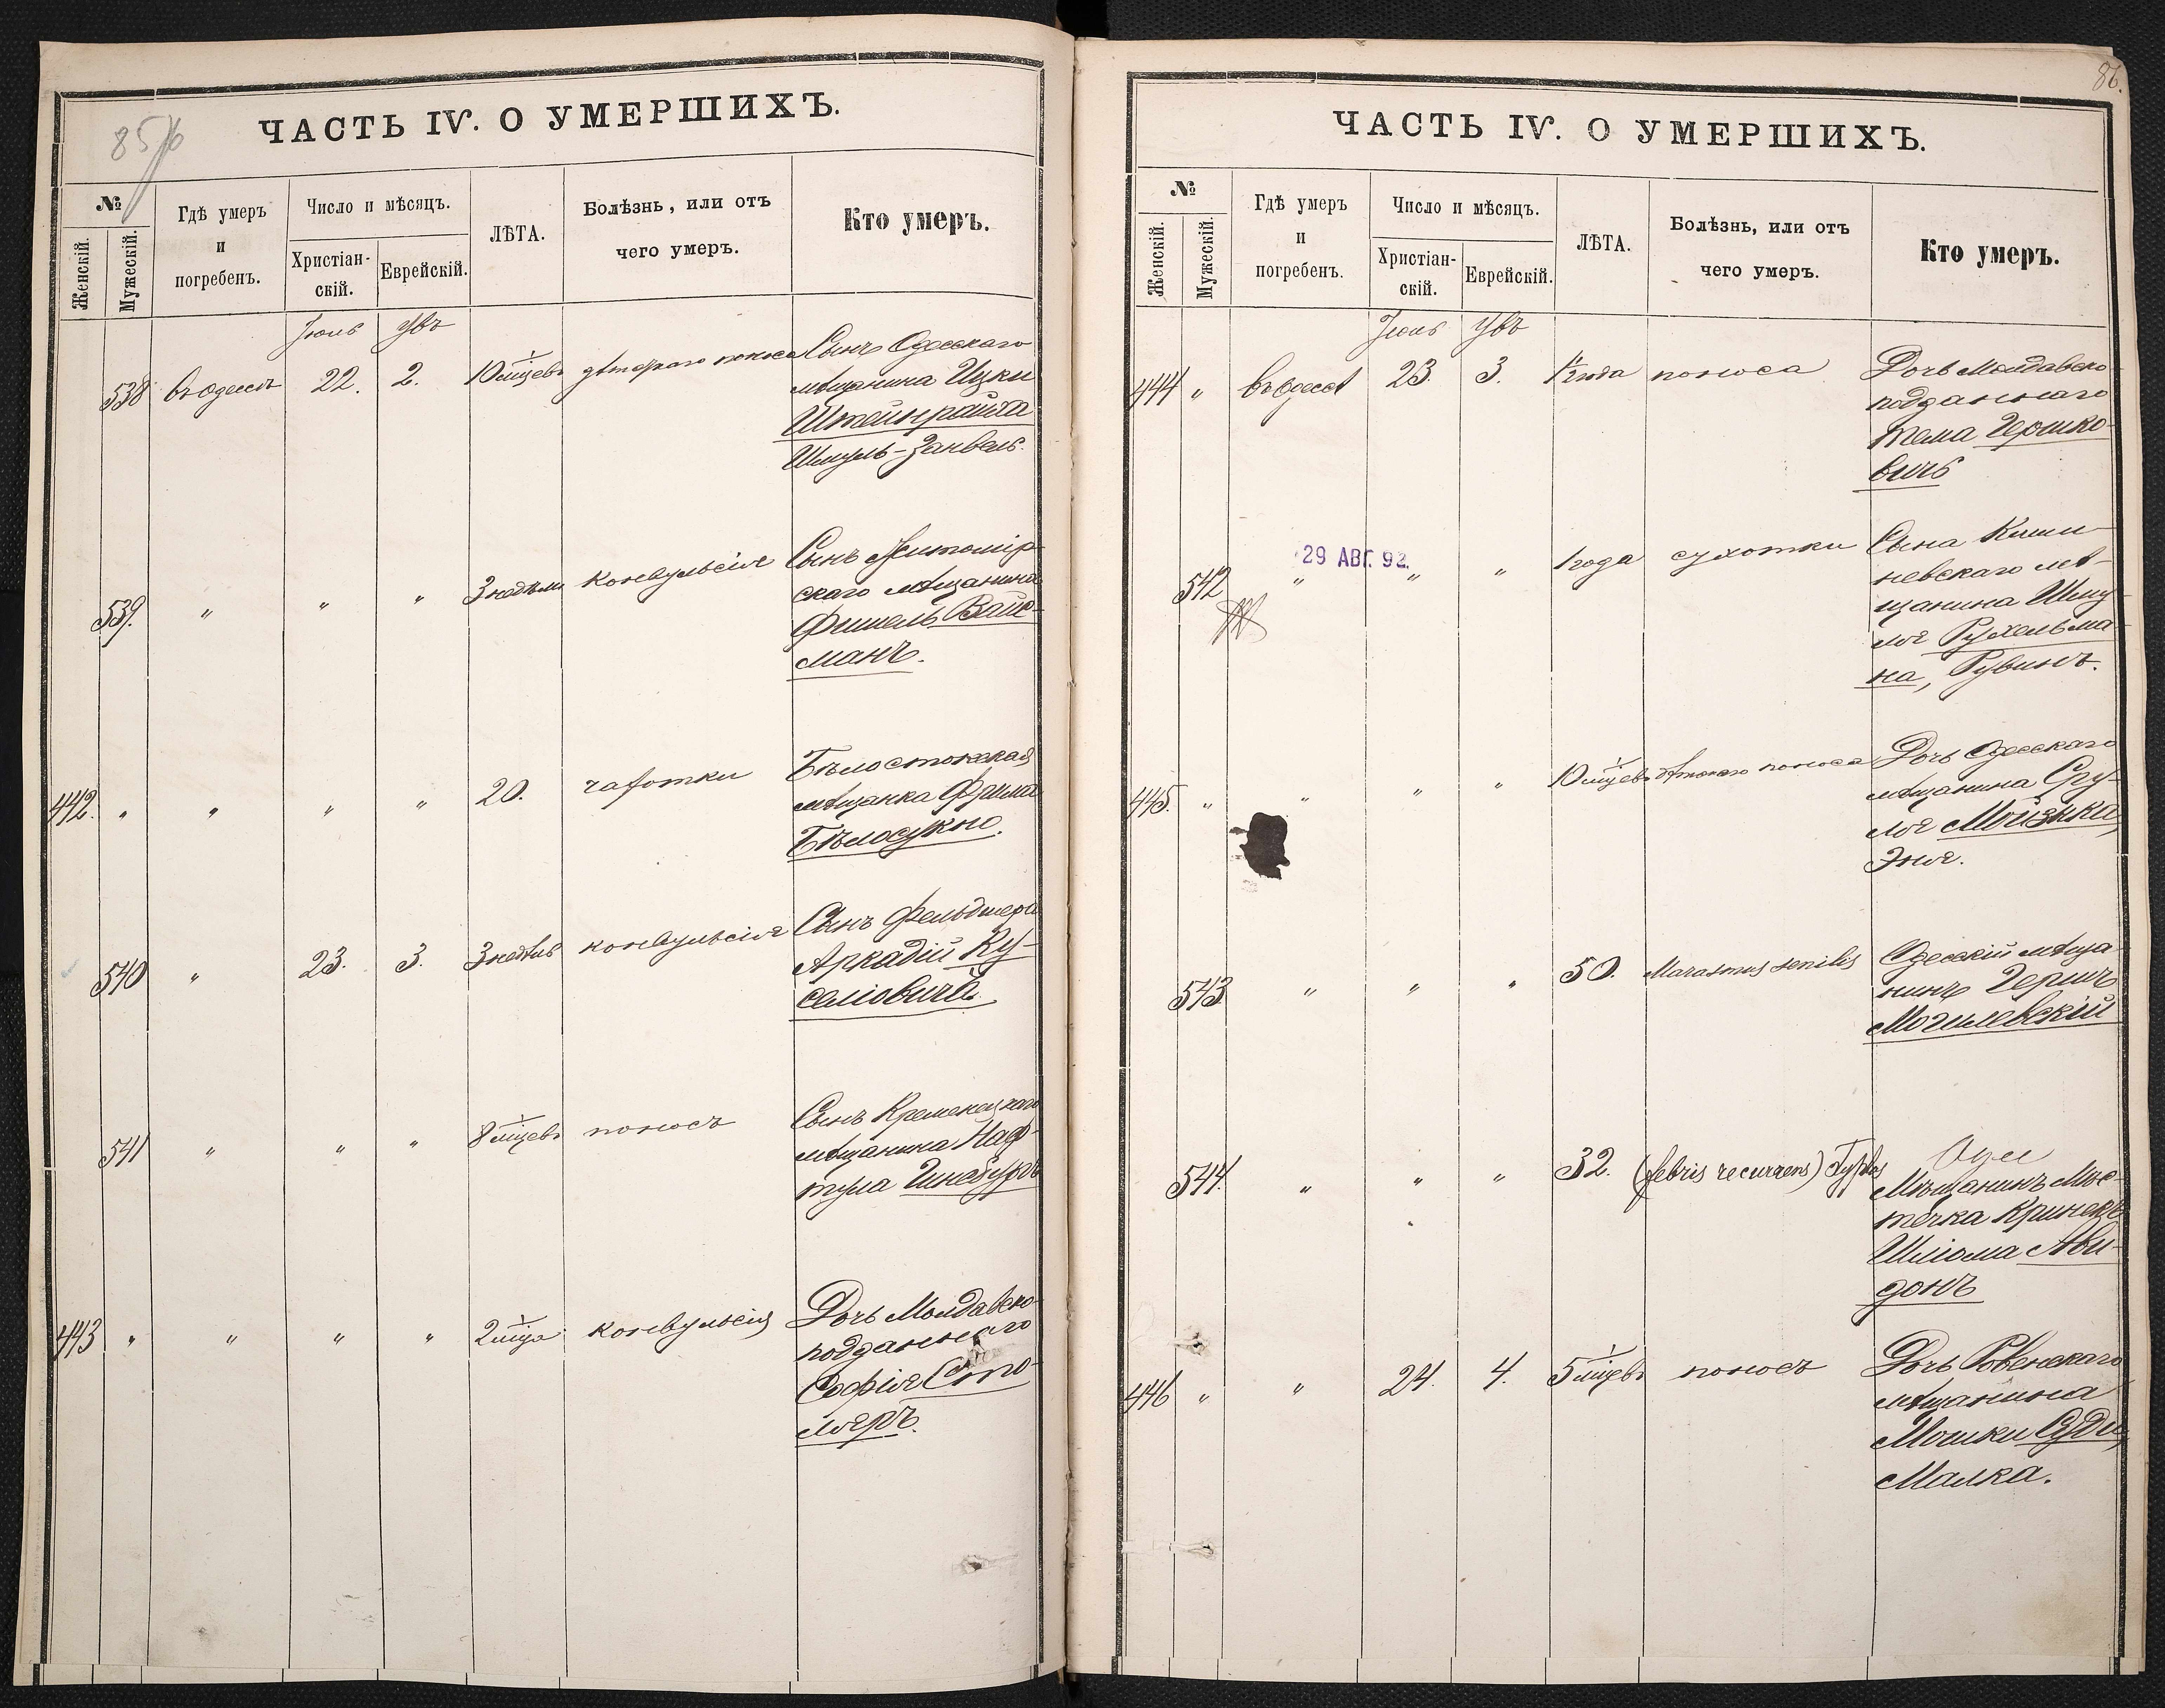 ЧАСТЬ IV. О УМЕРШИХЪ.
№
Женскій.
Мужескій.
Гдѣ умеръ
и
погребенъ.
Число и мѣсяцъ.
Христіан-
скій.
Еврейскій.
ЛѢТА.
Болѣзнь, или отъ
чего умеръ.
Кто умеръ.
Іюль
538 въ Одессѣ 22. 2. 10 мѣцевъ поноса Сынъ Одесскаго
мѣщанина Ицки
Штейнрайха
Шмуль-Занвель.
539. " " " 3 недѣли конвульсія Сынъ Житомір-
скаго мѣщанина
Фишель Вайс-
манъ.
442. " " " " 20. чахотки Бѣлостокская
мѣщанка Фрима
Бѣлосукно.
540 " 23. 3. 3 недѣль конвульсія Сынъ Фельдшера
Аркадій Ку-
селіовича.
541 " " " 8 мѣцевъ поносъ Сынъ Кременецкаго
мѣщанина Наф-
тула
443 " " " " 2 мѣца конвульсія Дочь Молдавско-
подданнаго
Софія Сто-
ляръ.
86.
ЧАСТЬ IV. О УМЕРШИХЪ.
№
Женскій.
Мужескій.
Гдѣ умеръ
и
погребенъ.
Число и мѣсяцъ.
Христіан-
скій.
Еврейскій.
ЛѢТА.
Болѣзнь, или отъ
чего умеръ.
Кто умеръ.
Іюль
444 " въ Одессѣ 23. 3. поноса Дочь Молдавско-
подданнаго
Гершко-
вичъ
29 АВГ. 92.
542 " " " 1 года сухотки Сына Киши-
невскаго мѣ-
щанина Шму-
ля Рухельма-
на, Рувинъ.
445. " " " " 10 мѣцевъ поноса Дочь Одесскаго
мѣщанина Сру-
ля Мойзкка,
Эня.
543 " " " 50. Marasmus senilis Одесскій мѣща-
нинъ Гершъ
Могилевскій
544. " " " 32. (febris recurrens) Typhus
Мѣщанинъ Мѣс-
течка Кринекъ
Шліома Ави-
донъ
446 " " 24. 4. 5 мѣцевъ поносъ Дочь Ровенскаго
мѣщанина
Мошки
Малка.